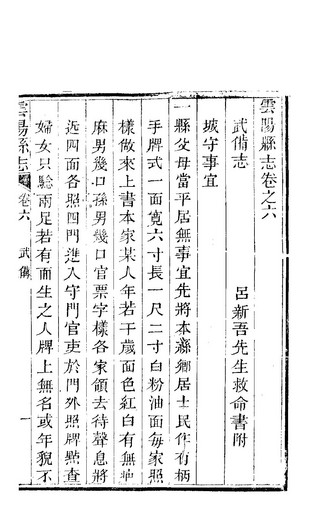 雲陽縣志卷之六
武備志
呂新吾先生救命書附
城守事宜
一縣父母當平居無事宜先將本縣鄉居士民作有柄
手牌式一面寬六寸長一尺二寸白粉油面每家照
樣做來上書本家某人年若干歲面色紅白有無
麻男幾口孫男幾口官票字樣各家領去待聲息將
近四面各照四門進入守門官吏於門外照牌點查
婦女只驗兩足若有面生之人牌上無名或年貌不
雲陽縣志
卷六
武備
一